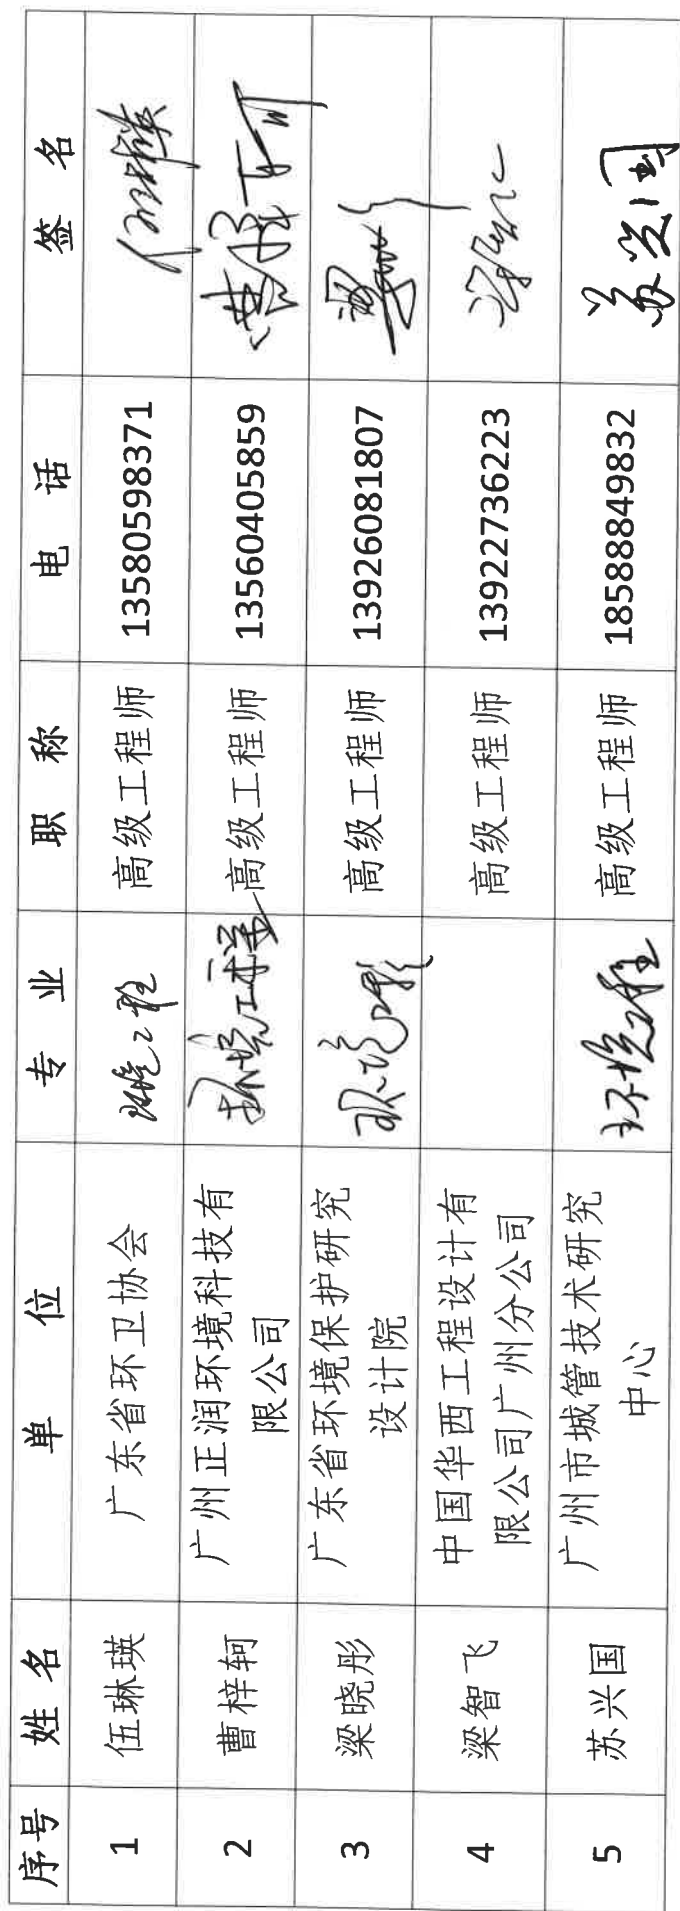 序号 姓名 单位 专业 职称 电话 签名
1 伍琳瑛 广东省环卫协会 环境工程 高级工程师 13580598371
2 曹梓轲 广州正润环境科技有 环境工程 高级工程师 13560405859 曹梓轲
限公司
3 梁晓彤 广东省环境保护研究 环境工程 高级工程师 13926081807
设计院
4 梁智飞 中国华西工程设计有 高级工程师 13922736223
限公司广州分公司
5 苏兴国 广州市城管技术研究 环境工程 高级工程师 18588849832 苏兴国
中心